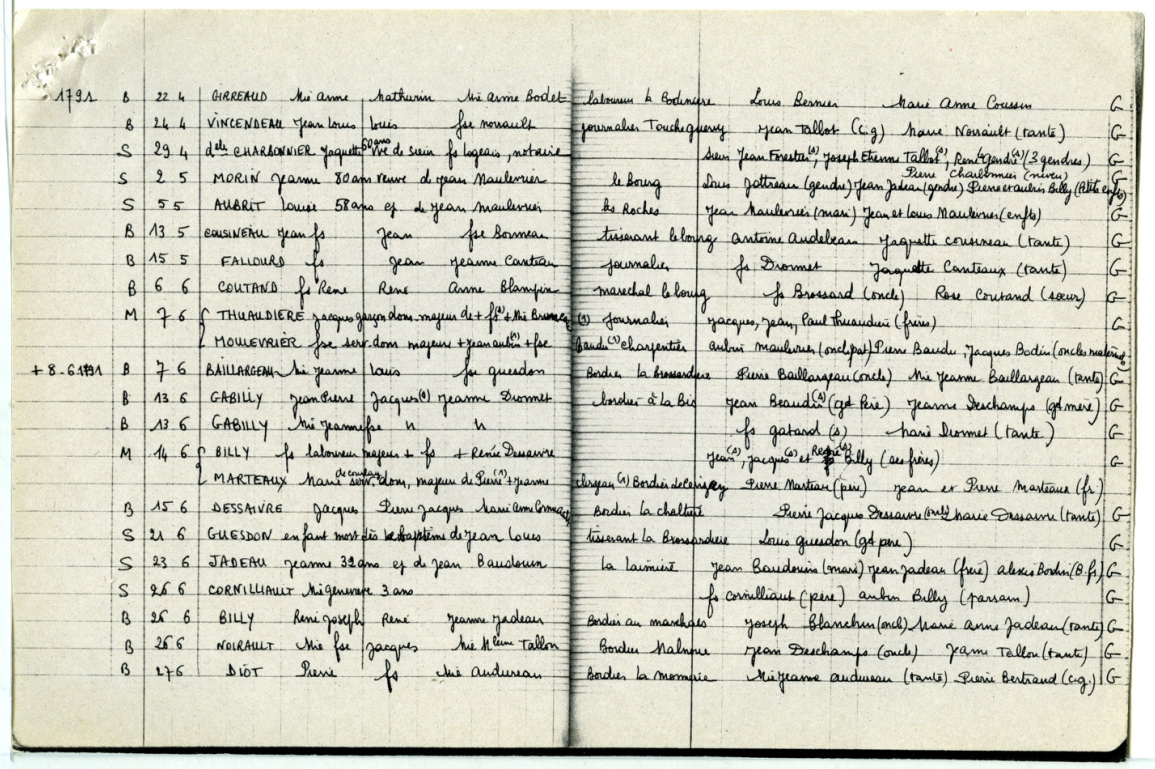 1791 B 22 4 GIRREAUD Mie Anne Mathurin Mie Anne Bodet laboureur la Bodiniere Louis Bernier Marie Anne Cousson G
B 24 4 VINCENDEAU Jean Louis Louis fse noirault journalier Touche guerry Jean Tallot (c.g) Marie Noirault (tante) G
S 29 4 delle CHARBONNIER Jaquette 60 ans vve de sieur fs Logeais, notaire sieur Jean Forestier (s), Joseph Etienne Tallot (s), René Gendre (s) (3 gendres) G
Pierre Charbonnier (niveu)
S 2 5 MORIN Jeanne 80 ans veuve de Jean Maulevrier le Bourg Louis Jottreau (gendre) Jean Jadeau (gendre) Pierre et aubin Billy (Petits enfts) G
S 5 5 AUBRIT Louise 58 ans ep de Jean Maulevrier les Roches Jean Maulevrier (mari) Jean et Louis Maulevrier (enfts) G
B 13 5 COUSINEAU Jean fs Jean fse Bonneau tisserant le bourg Antoine Audebeau Jaquette cousineau (tante) G
B 15 5 FALLOURD fs Jean Jeanne Canteau journalier fs Dromet Jaquette Canteaux (tante) G
B 6 6 COUTAND fs René René Anne Blampin marechal le bourg fs Brossard (oncle) Rose Coutand (sœur) G
M 7 6 THUAUDIERE Jacques garçon dom. majeur de + fs (s) + Mie (s) Journalier Jacques, Jean, Paul Thuaudiere (frères) G
MOULEVRIER fse serv. dom majeur + Jean aubin (s) + fse Baudu (s) charpentier aubin maulevrier (oncl pat) Pierre Baudu, Jacques Bodin (oncles maternels) G
+ 8.6 1791 B 7 6 BAILLARGEAU Mie Jeanne Louis fse guesdon Bordier la Brossardiere Pierre Baillargeau (oncle) Mie Jeanne Baillargeau (tante) G
B 13 6 GABILLY Jean Pierre Jacques (s) Jeanne Dromet bordier à la Bio Jean Beaudin (s) (gd Père) Jeanne Deschamps (gd mère) G
B 13 6 GABILLY Mie Jeanne fse " " fs gatard (s) Marie Dromet (tante) G
M 14 6 BILLY fs laboureur majeur + fs + Renée Dessaivre Jean (s), Jacques (s) et René (s) Billy (ses frères) G
MARTEAUX Marie serv. dom, majeur de Pierre (s) + Jeanne (s) Bordier Pierre Marteau (père) Jean et Pierre Marteaux (fr)
B 15 6 DESSAIVRE Jacques Pierre Jacques Marie Anne Bordier la Pierre Jacques Dessaivre (oncl) Marie Dessaivre (tante) G
S 21 6 GUESDON enfant mort dès le baptème de Jean Louis tisserant la Brossardiere Louis guesdon (gd pere) G
S 23 6 JADEAU Jeanne 32 ans ep de Jean Baudouin la Jean Baudouin (mari) Jean Jadeau (frère) alexis Bordin (B.fr) G
S 26 6 CORNILLIAULT Mie Genevieve 3 ans fs cornilliaut (père) aubin Billy (parrain) G
B 26 6 BILLY René Joseph René Jeanne Jadeau Bordier au marchais Joseph Blanchin (oncl) Marie Anne Jadeau (tante) G
B 26 6 NOIRAULT Mie fse Jacques Mie Mleine Tallon Bordier Malnoue Jean Deschamps (oncle) Jeanne Tallon (tante) G
B 27 6 DIOT Pierre fs Mie Audureau Bordier la monnerie Mie Jeanne audureau (tante) Pierre Bertrand (c.g.) G